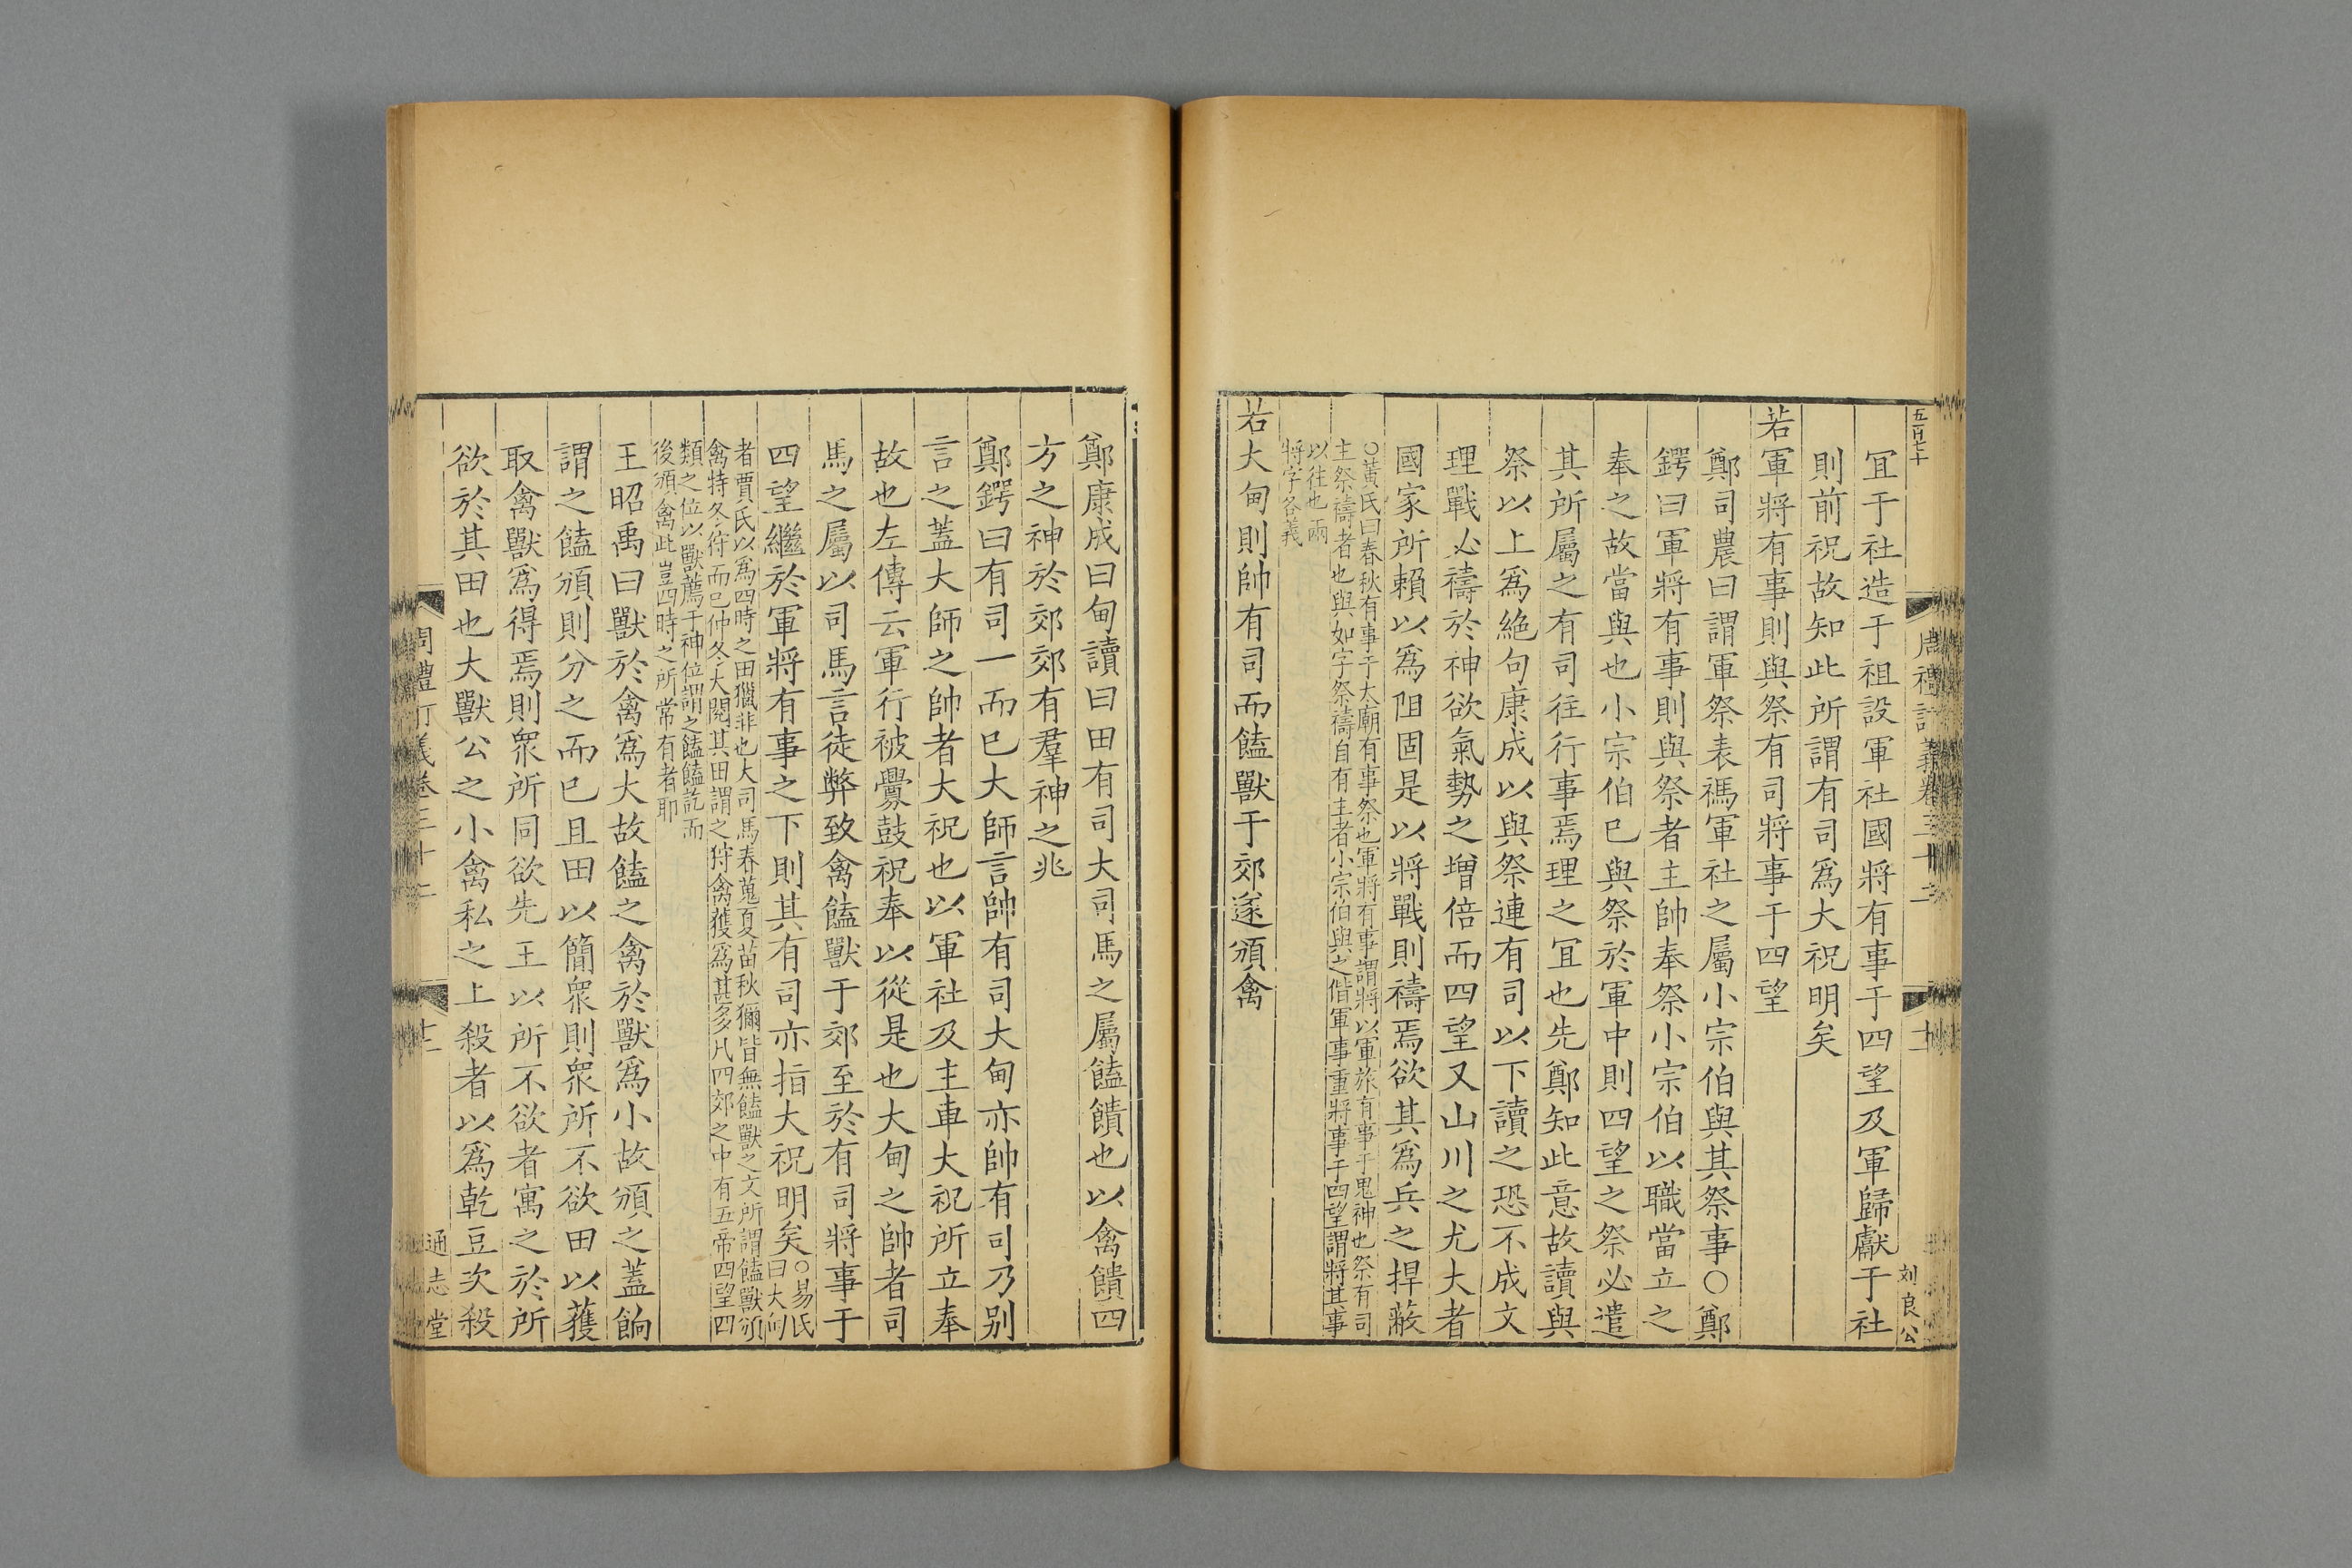 五百七十
宜于社造于祖設軍社國將有事于四望及軍歸獻于社
則前祝故知此所謂有司為大祝明矣
若軍將有事則與祭有司將事于四望
鄭司農曰謂軍祭表禡軍社之屬小宗伯與其祭事○鄭
鍔曰軍將有事則與祭者主帥奉祭小宗伯以職當立之
奉之故當與也小宗伯巳與祭於軍中則四望之祭必遣
其所屬之有司往行事焉理之宜也先鄭知此意故讀與
祭以上爲絶句康成以與祭連有司以下讀之恐不成文
理戰必禱於神欲氣勢之增倍而四望又山川之尤大者
國家所賴以爲阻固是以將戰則禱焉欲其爲兵之捍蔽
○黃氏曰春秋有事于太廟有事祭也軍將有事謂將以軍旅有事于鬼神也祭有司
主祭禱者也與如字祭禱自有主者小宗伯與之偕軍事重將事于四望謂將其事
以往也兩
將字各義
若大甸則帥有司而饁獸于郊遂頒禽
劉良公
鄭康成曰甸讀曰田有司大司馬之屬饁饋也以禽饋四
方之神於郊郊有羣神之兆
鄭鍔曰有司一而巳大師言帥有司大甸亦帥有司乃别
言之蓋大師之帥者大祝也以軍社及主車大祝所立奉
故也左傳云軍行被釁鼓祝奉以從是也大甸之帥者司
馬之屬以司馬言徒弊致禽饁獸于郊至於有司將事于
四望繼於軍將有事之下則其有司亦指大祝明矣○易氏
曰大甸
者賈氏以爲四時之田獵非也大司馬春蒐夏苗秋獮皆無饁獸之文所謂饁獸頒
禽特冬狩而巳仲冬大閱其田謂之狩禽獲爲甚多凡四郊之中有五帝四望四
類之位以獸薦于神位謂之饁饁訖而
後頒禽此豈四時之所常有者耶
王昭禹曰獸於禽爲大故饁之禽於獸爲小故頒之蓋餉
謂之饁頒則分之而巳且田以簡衆則衆所不欲田以獲
取禽獸爲得焉則衆所同欲先王以所不欲者寓之於所
欲於其田也大獸公之小禽私之上殺者以爲乾豆次殺
周禮訂義卷三十二
十二
通志堂